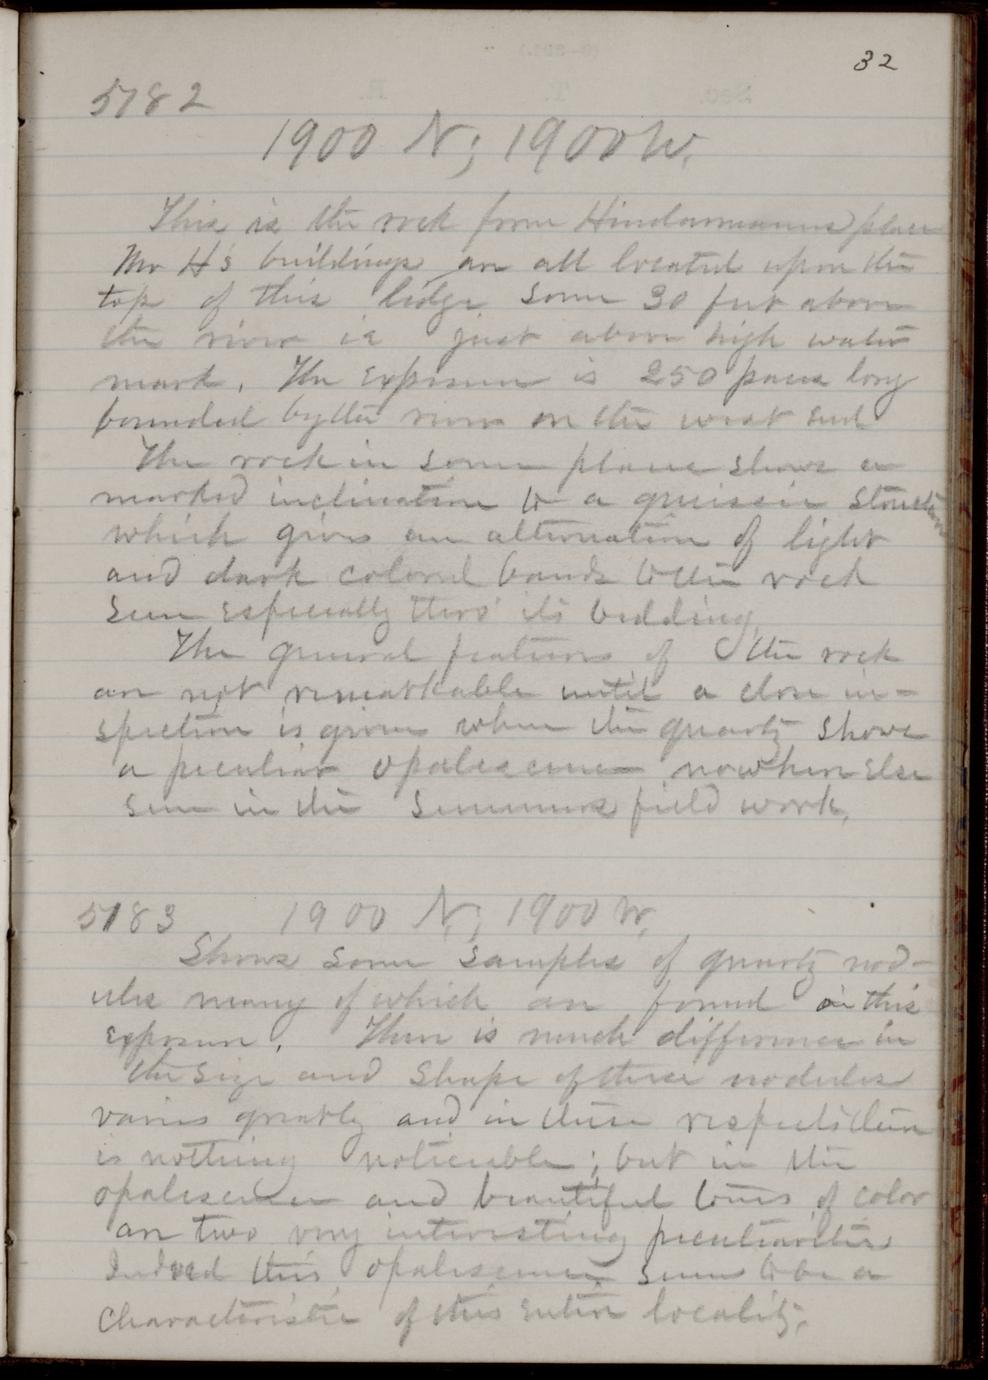 32
5182
1900 N; 1900 W.
This is the rock from Hindarmanns place
Mr H's buildings are all located upon the
top of this lidge some 30 feet above
the river ie just above high water
mark. The exposure is 250 paces long
bounded by the river on the west end
The rock in some places shows a
marked inclination to a gneissic structure
which gives an alternation of light
and dark colored bands to the rock
seen especially thro' its bedding.
The general features of the rock
are not remarkable until a close in-
spection is given when the quartz shows
a peculiar opalescence nowhere else
seen in the summers field work.
5183 1900 N; 1900 W.
Shows some samples of quartz nod-
ules many of which are found in this
exposure. There is much difference in
the size and shape of these nodules
varies greatly and in these respects there
is nothing noticeable; but in the
opalescence and beautiful tones of color
are two very interesting peculiarities
Indeed this opalescence seems to be a
characteristic of this entire locality.